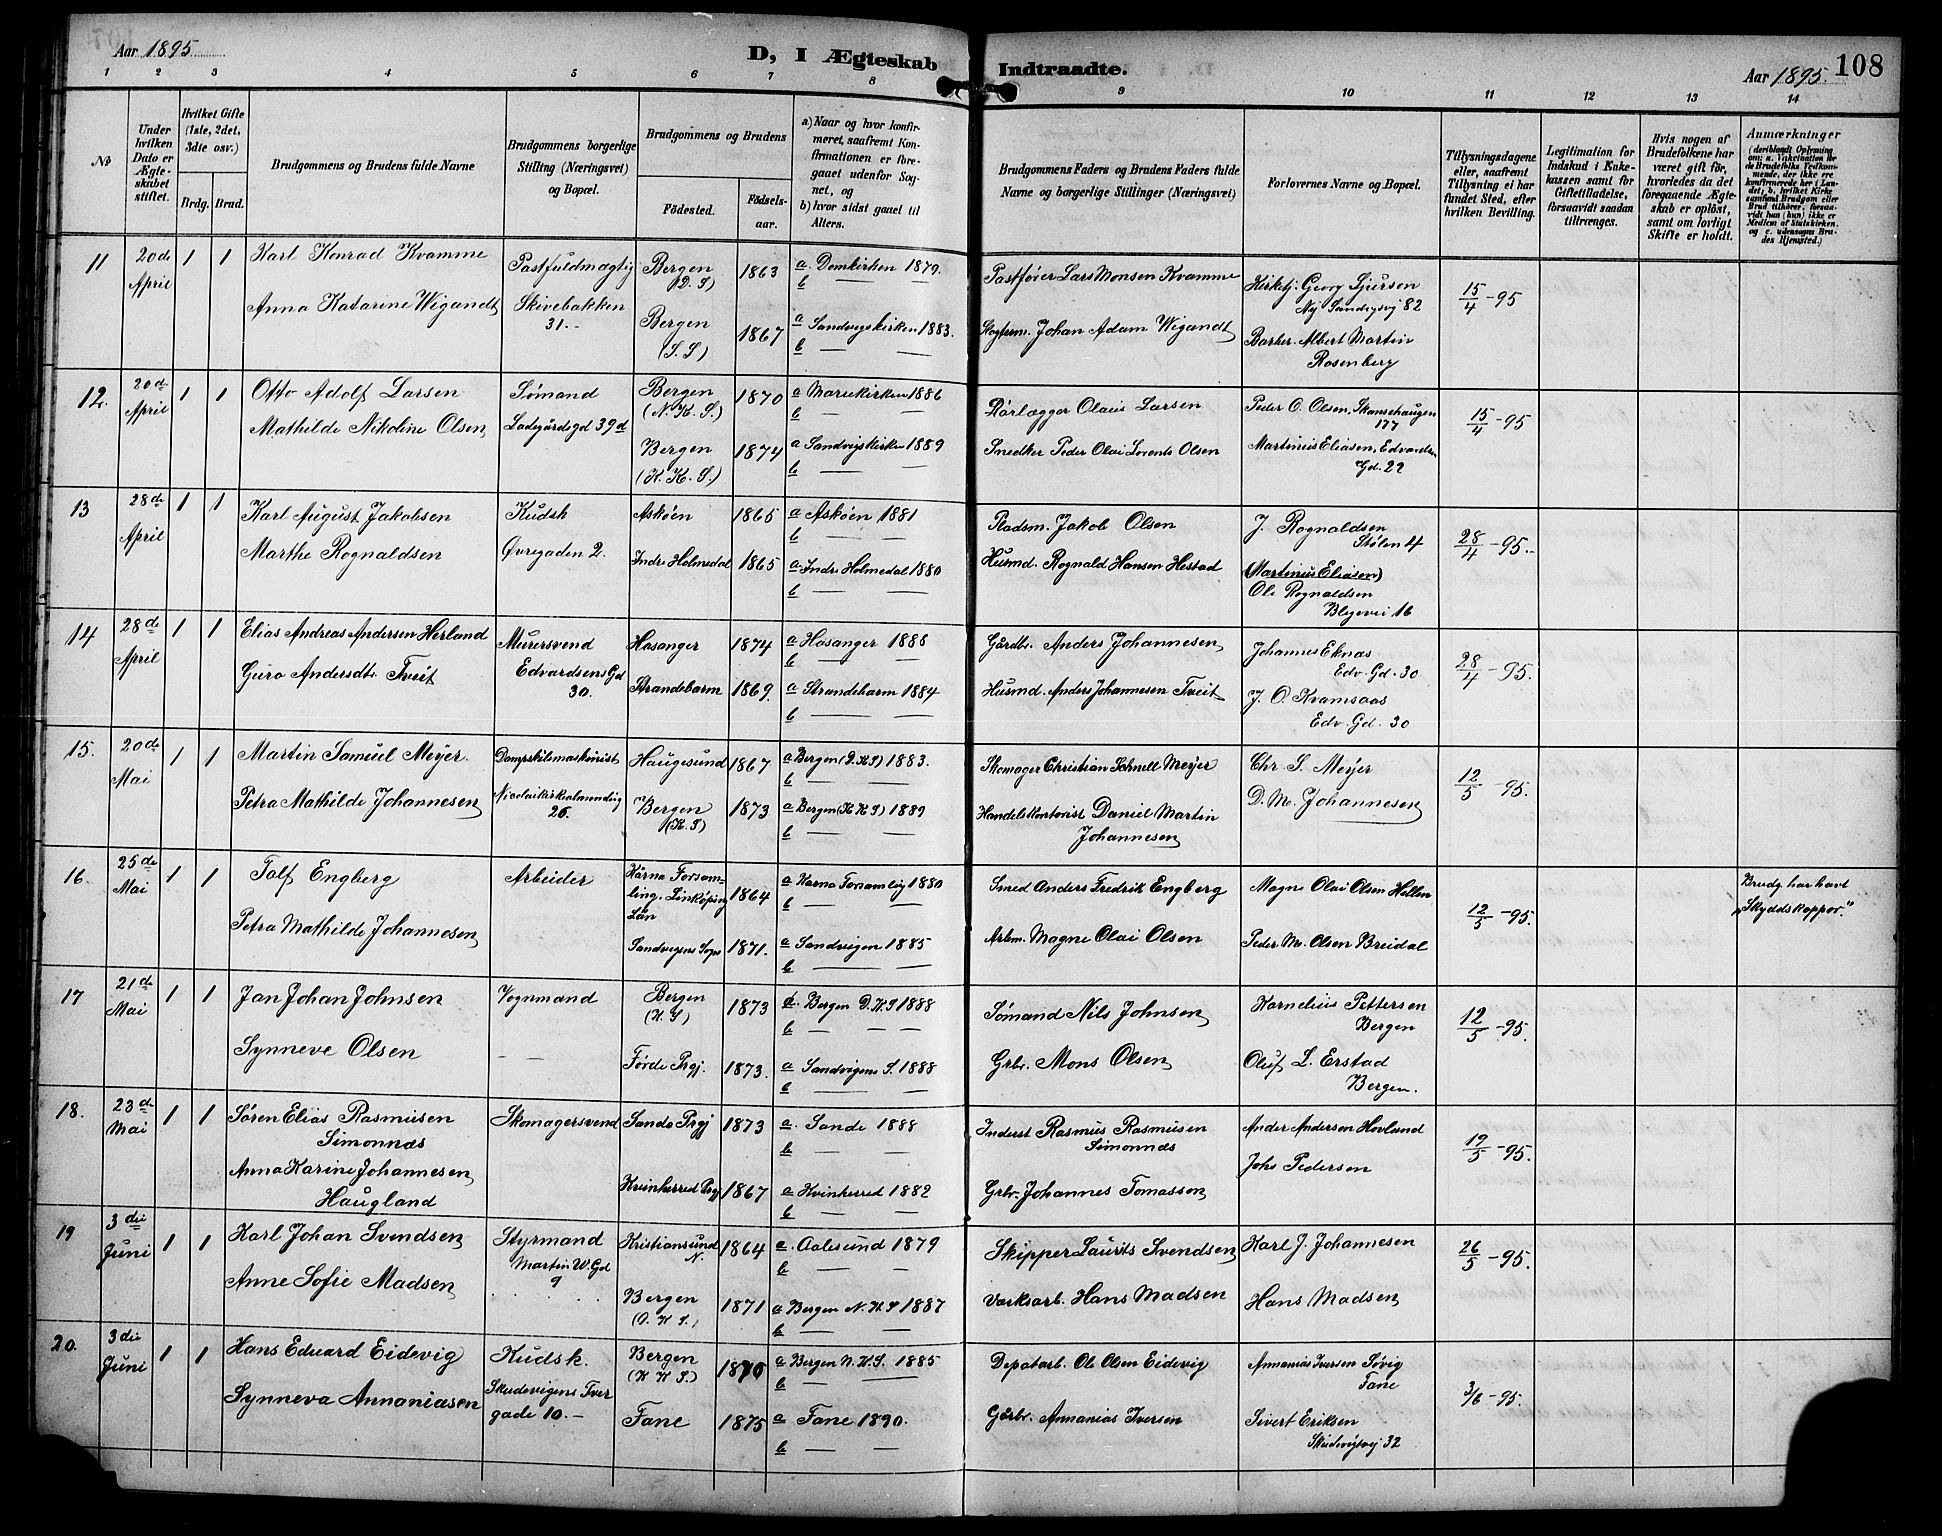 Aar 1895.
D, I Ægteskab Indtraadte.
Aar 1895. 108
1 2 3 4 5 6 7 8 9 10 11 12 13 14
No
Under hvilken Dato er Ægteskabet stiftet.
Hvilket Gifte (1ste, 2det, 3die osv.)
Brdg. Brud.
Brudgommens og Brudens fulde Navne
Brudgommens borgerlige Stilling (Næringsvei) og Bopæl.
Brudgommens og Brudens
Fødested. Fødselsaar.
a) Naar og hvor konfirmeret, saafremt Konfirmationen er foregaaet udenfor Sognet, og
b) hvor sidst gaaet til Alters.
Brudgommens Faders og Brudens Faders fulde Navne og borgerlige Stillinger (Næringsvei)
Forlovernes Navne og Bopæl.
Tillysningsdagene eller, saafremt Tillysning ei har fundet Sted, efter hvilken Bevilling.
Legitimation for Indskud i Enkekassen samt for Giftetilladelse, forsaavidt saadan tiltrænges.
Hvis nogen af Brudefolkene har været gift før, hvorledes da det foregaaende Ægteskab er opløst, samt om lovligt Skifte er holdt.
Anmærkninger
11 20de April 1 1 Karl Konrad Kvamme Postfuldmægtig Bergen (D. S) 1863 a Domkirken 1879. Postfører Lars Monsen Kvamme Kirketj. Georg Sjursen Ny Sandvigsvj 82 15/4 -95
Anna Katarine Wigandt Skivebakken 31.- Bergen (S. S) 1867 a Sandvigskirken 1883. b Johan Adam Wigandt Barber. Albert Martin Rosenberg
12. 20de April 1 1 Otto Adolf Larsen Sømand Bergen (N. K. S.) 1870 a Mariekirken 1886 b Rørlægger Olaus Larsen Peder O. Olsen, Skansehaugen 177 15/4 -95
Mathilde Nikoline Olsen Ladegårdsgd 39d Bergen (K. K. S.) 1874 a Sandvigskirken 1889 b Snedker Peder Olai Lorents Olsen Martinius Eliasen, Edvardsen Gd. 22
13 28de April 1 1 Karl August Jakobsen Kudsk Askøen 1865 a Askøen 1881 b Pladsm. Jakob Olsen J. Rognaldsen Stølen 4 28/4 -95.
Marthe Rognaldsen Øvregaden 2. Indre Holmedal 1865 a Indre Holmedal 1880 b Husmd. Rognald Hansen Hestad (Martinius Eliasen) Ole Rognaldsen Blegevei 16
14 28de April 1 1 Elias Andreas Andersen Herland Murersvend Hosanger 1874 a Hosanger 1888 b Gårdbr. Anders Johannesen Johannes Eknas Edv. Gd. 30 28/4 -95.
Guro Andersdtr. Tveit Edvardsens Gd 30. Strandebarm 1869. a Strandebarm 1884 b Husmd. Anders Johannesen Tveit J. O. Kvamsaas Edv. Gd. 30
15. 20de Mai 1 1 Martin Samuel Meyer Dampskibsmaskinist Haugesund 1867 a Bergen (D. K S) 1883. b Skomager Christian Schnell Meyer Chr S. Meyer 12/5 -95.
Petra Mathilde Johannesen Nicolaikirkealmending 26. Bergen (K. S) 1873 a Bergen (K K S) 1889 b Handelskontorist Daniel Martin Johannesen D. M. Johannesen
16. 25de Mai 1 1 Tolf Engberg Arbeider Kärna Forsamling. Linköping Län 1864 a Karna Forsamlig 1880 b Smed Anders Fredrik Engberg Magne Olai Olsen Hellen 12/5 -95. Brudg. har havt "Skyddskoppor."
Petra Mathilde Johannesen Sandvigens Sogn 1871. a Sandvigen 1885 b Arbm. Magne Olai Olsen Peder M. Olsen Breidal
17 21de Mai 1 1 Jan Johan Johnsen Vognmand Bergen (K. S) 1873 a. Bergen D. K S 1888 b Sømand Nils Johnsen Kornelius Pettersen Bergen 12/5 -95.
Synneve Olsen Førde Prgj. 1873. a Sandvigens S. 1888 b Grbr. Mons Olsen Oluf L. Erstad Bergen.
18. 23de Mai 1 1 Søren Elias Rasmusen Simonnæs Skomagersvend Sande Prgj 1873 a. Sande 1888 b Inderst Rasmus Rasmusen Simonnæs Ander Andersen Hovland 12/5 -95.
Anna Karine Johannesen Haugland Kvinherred Prgj 1867 a Kvinherred 1882 b Grbr. Johannes Tomassen Johs Pedersen
19 3die Juni 1 1 Karl Johan Svendsen Styrmand Kristiansund N. 1864 a. Aalesund 1879 b Skipper Laurits Svendsen Karl J. Johannesen 26/5 -95.
Anne Sofie Madsen Martin W. Gd 9 Bergen (D. K S.) 1871 a Bergen N. K S 1887 b Værksarb. Hans Madsen Hans Madsen
20. 3die Juni 1 1 Hans Eduard Eidevig Kudsk. Bergen (K K S.) 1870 a Bergen N. K. S. 1885 b Depotarb. Ole Olsen Eidevig Annanias Iversen Søvig Fane 3/6 -95.
Synneva Annaniasen Skudevigens Tvergade 10.- Fane 1875 a Fane 1890. b Gårbr. Annanias Iversen Sivert Eriksen Skudevigsvej 32